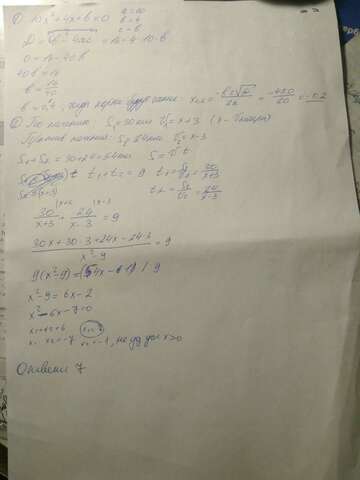 ① 10x²+4x+b=0 a=10
b=4
c=b
D=√b²-4ac=16-4·10·b
0=16-40b
40b=16
b=16/40
b=0,4, тогда корень будет равен: x₁,₂=-b±√D/2a=-4±0/20=-0.2
② По течению: S₁=30км V₁=x+3 (x-Vлодки)
Против течения: S₂=24км V₂=x-3
S₁+S₂=30+24=54км S=V·t
t₁+t₂=9 t₁=S₁/V₁=30/x+3
t₂=S₂/V₂=24/x-3
30/x+3+24/x-3=9
30x+30·3+24x-24·3/x²-9=9
9(x²-9)=(54x-18)/9
x²-9=6x-2
x²-6x-7=0
x₁+x₂=6 x₁=7
x₁·x₂=-7 x₂=-1, не уд усл x>0
Ответ: 7